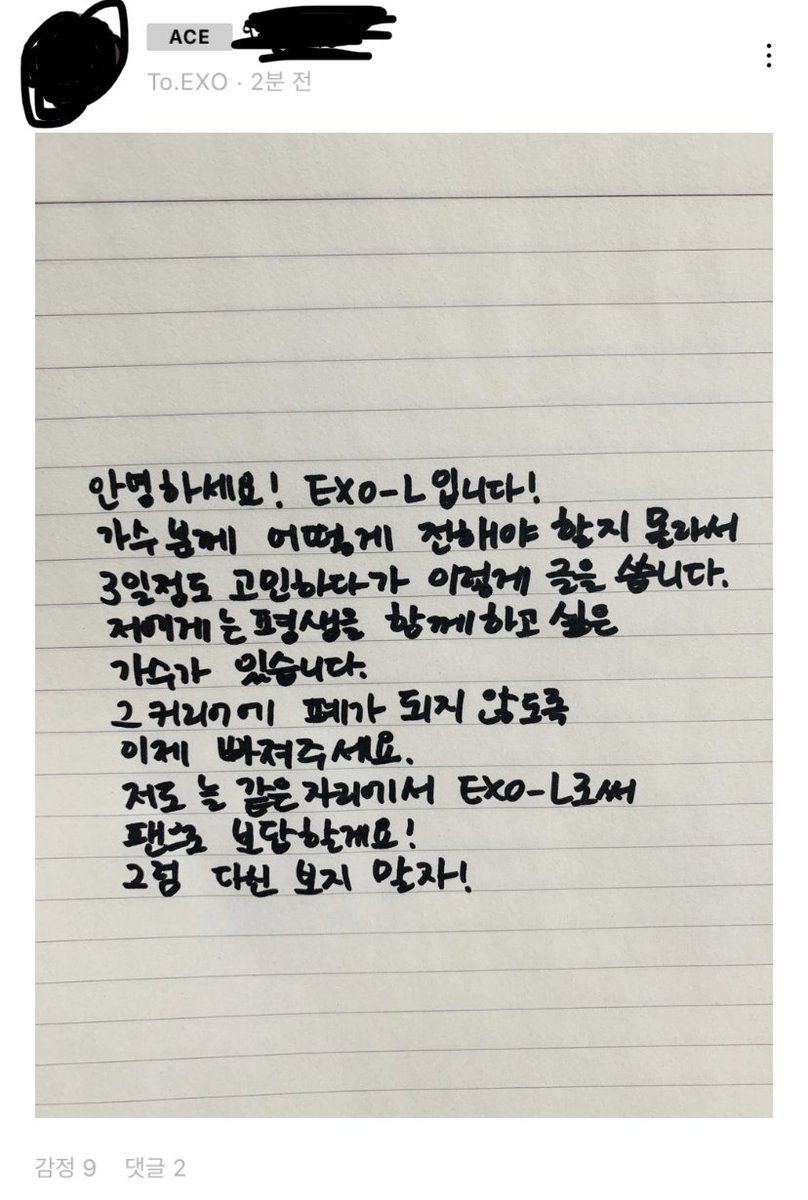 ACE
To.EXO · 2분 전
안녕하세요! EXO-L입니다!
가수분께 어떻게 전해야 할지 몰라서
3일정도 고민하다가 이렇게 글을 씁니다.
저에게는 평생을 함께하고 싶은
가수가 있습니다.
그 커리어에 폐가 되지 않도록
이제 빠져주세요.
저도 늘 같은 자리에서 EXO-L로써
팬으로 보답할게요!
그럼 다신 보지 말자!
감정 9 댓글 2